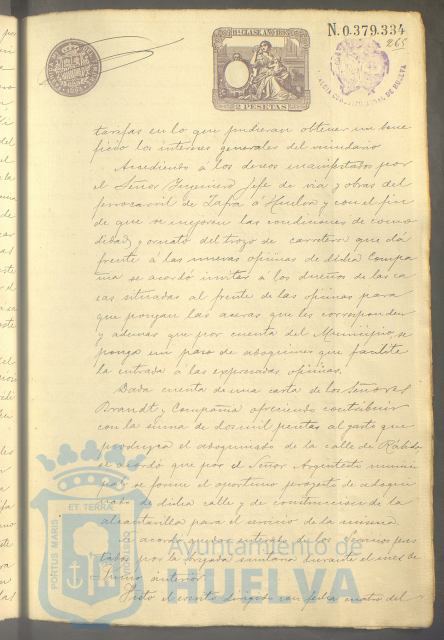 11ª CLASE AÑO 1895
N. 0.379.334
265
2 PESETAS
tarifas en lo que pudieran obtener un bene
ficio los intereses generales del vecindario
Accediendo á los deseos manifestados por
el Señor Ingeniero Jefe de via y obras del
ferrocarril de Zafra á Huelva y con el fin
de que se mejoren las condiciones de como
didad y ornato del trozo de carretera que dá
frente á las nuevas oficinas de dicha Compa
ñia se acordó invitar á los dueños de las ca
sas situadas al frente de las oficinas para
que pongan las aceras que les corresponden
y ademas que por cuenta del Municipio se
ponga un paso de adoquines que facilite
la entrada á las expresadas oficinas.
Dada cuenta de una carta de los Señores
Brandt y Compañia ofreciendo contribuir
con la suma de dos mil pesetas al gasto que
produzca el adoquinado de la calle de Rábida
se acordó que por el Señor Arquitecto munici
pal se forme el oportuno proyecto de adoqui
nado de dicha calle y de construccion de la
alcantarilla para el servicio de la misma
Se acordó quedar enterado de los servicios pres
tados por la brigada sanitaria durante el mes de
Junio anterior.
Visto el escrito dirigido con fecha cuatro del
PORTUS MARIS ET TERRÆ CUSTODIA
Ayuntamiento de
HUELVA